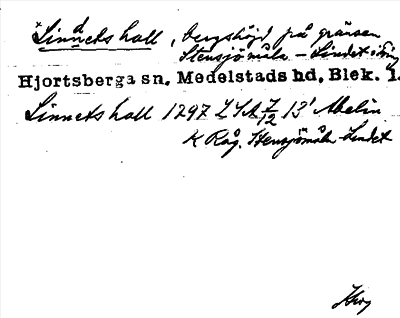 Linnets hall, bergshöjd på gränsen
Stensjömåla – Lindet
Hjortsberga sn. Medelstads hd. Blek. l.
Linnets hall 1797 LSA 7/12 13' Abelin
K Råg. Stensjömåla Lindet